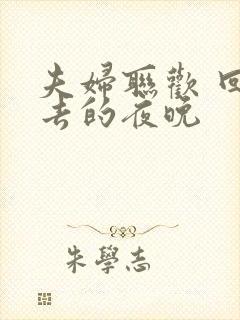 夫婦聯歡 回
去的夜晚
朱學志